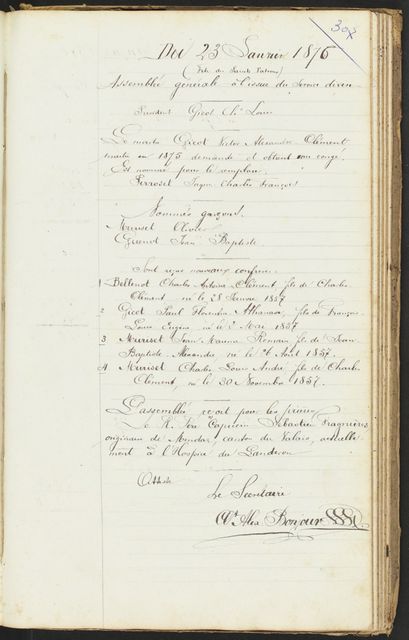 307
Du 23 Janvier 1876
(Fête des Saints Patrons)
Assemblée générale à l'issue du Service divin
Président Gicot Chs Louis
Le maitre Gicot Victor Alexandre Clément
en 1875 demande et obtient son congé.
Est nommé pour le remplacer
Perroset Charles François
Nommés garçons.
Muriset Olivier
Jean Baptiste
Sont reçus nouveaux confrères
1 Bellenot Charles Antoine Clément fils de Charles
Clément né le 28 Janvier 1857
2 Gicot Paul Florentin Athanase, fils de François
Louis né le 2 Mai 1857
3 Muriset Jean Maxime Romain fils de Jean
Baptiste Alexandre né le 6 Août 1857.
4 Muriset Charles Louis André fils de Charles
Clément, né le 30 Novembre 1857.
L'assemblée reçoit pour les prières
Le R. Père Capucin Sébastien Fragnière
originaire de canton du Valais, actuelle
ment à l'Hospice du Landeron
Atteste
Le Secrétaire
Alex Bonjour